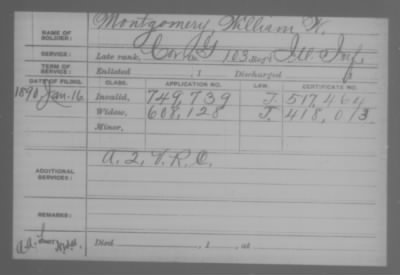 NAME OF SOLDIER: Montgomery, William W.
SERVICE: Late rank, Co. G 103 Regt Ill. Inf.
TERM OF SERVICE: Enlisted , 1 Discharged
DATE OF FILING. CLASS. APPLICATION NO. LAW. CERTIFICATE NO.
1890, Jan. 16 Invalid, 749,739 J. 517,464
Widow, 608,128 J. 418,013
Minor,
ADDITIONAL SERVICES: A. 2, V.R.C.
REMARKS:
Died , 1 , at